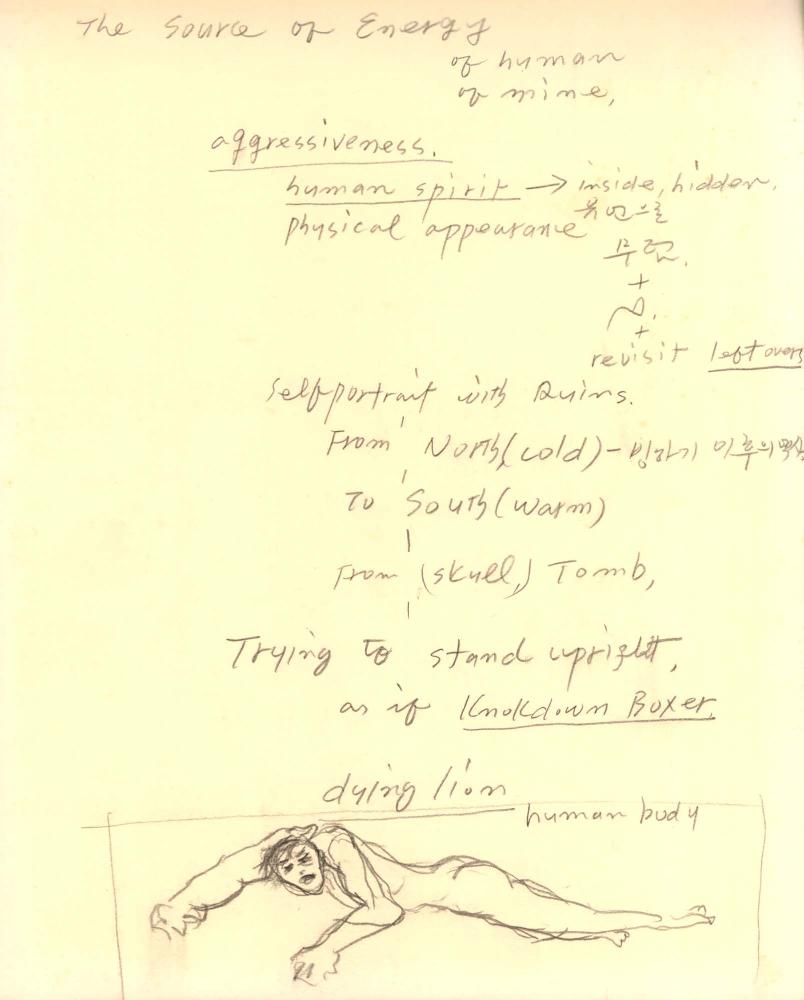 The Source of Energy
of human
of mine,
aggressiveness.
human spirit → inside, hidden.
physical appearance
+
+
revisit leftovers
Selfportrait with Ruins.
From North, (cold) - 빙하기 이후의
To South (warm)
From (skull,) Tomb,
Trying to stand upright,
as if Knokdown Boxer.
dying lion
human body